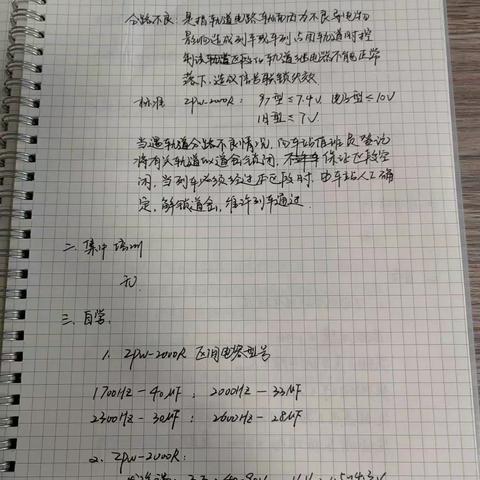 分路不良:是指轨道电路轨面因为不良导电物
影响造成列车或车列占用轨道时控
制该轨道区段的轨道继电器不能正常
落下,造成信号联锁失效
标准 ZPW-2000R: 97型≤7.4V 电子型≤10V
旧型≤7V
当遇轨道分路不良情况,由车站值班员登记
将有关轨道 道岔锁闭,保证区段空
闲,当列车必须经过本区段时,由车站人工确
定,解锁道岔,准许列车通过.
二、集中培训
无.
三、自学.
1. ZPW-2000R 区间电容型号
1700HZ-40μF; 2000HZ-33μF
2300HZ-30μF; 2600HZ-28μF
2. ZPW-2000R: